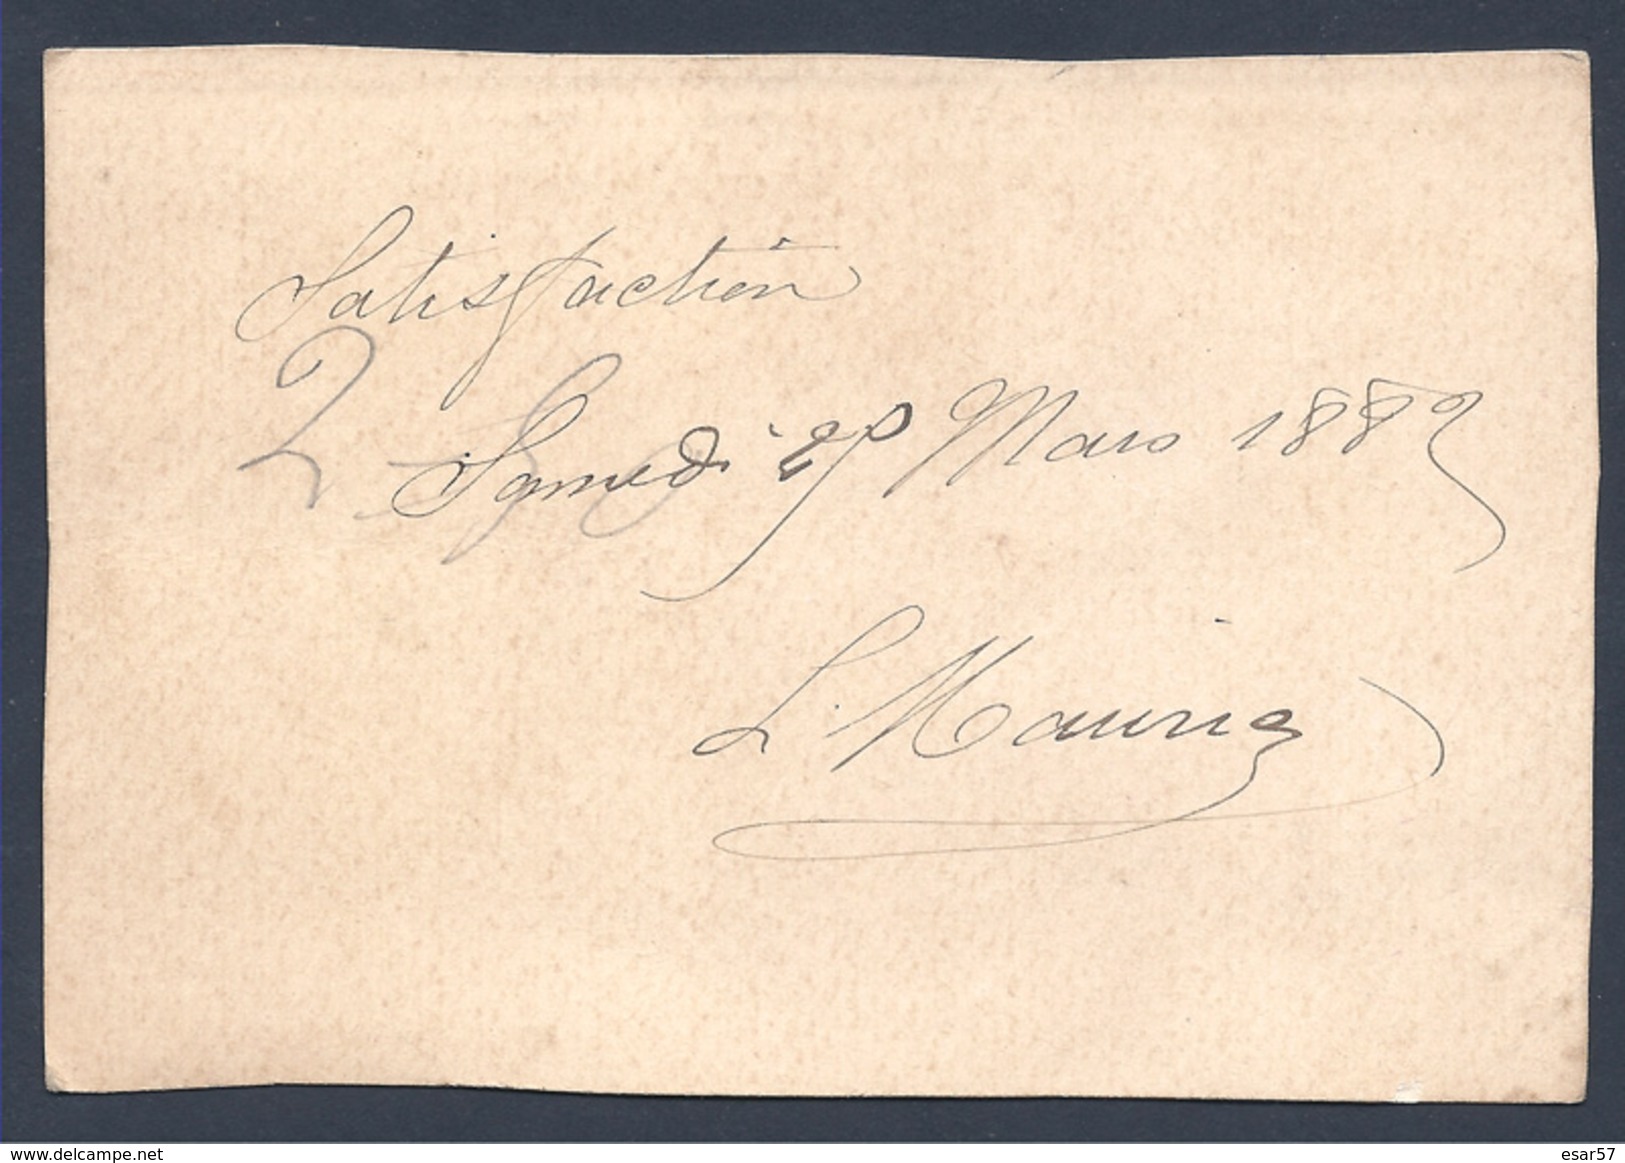 Satisfaction
Samedi 29 Mars 1882
2
L. Maurice
delcampe.net
esar57